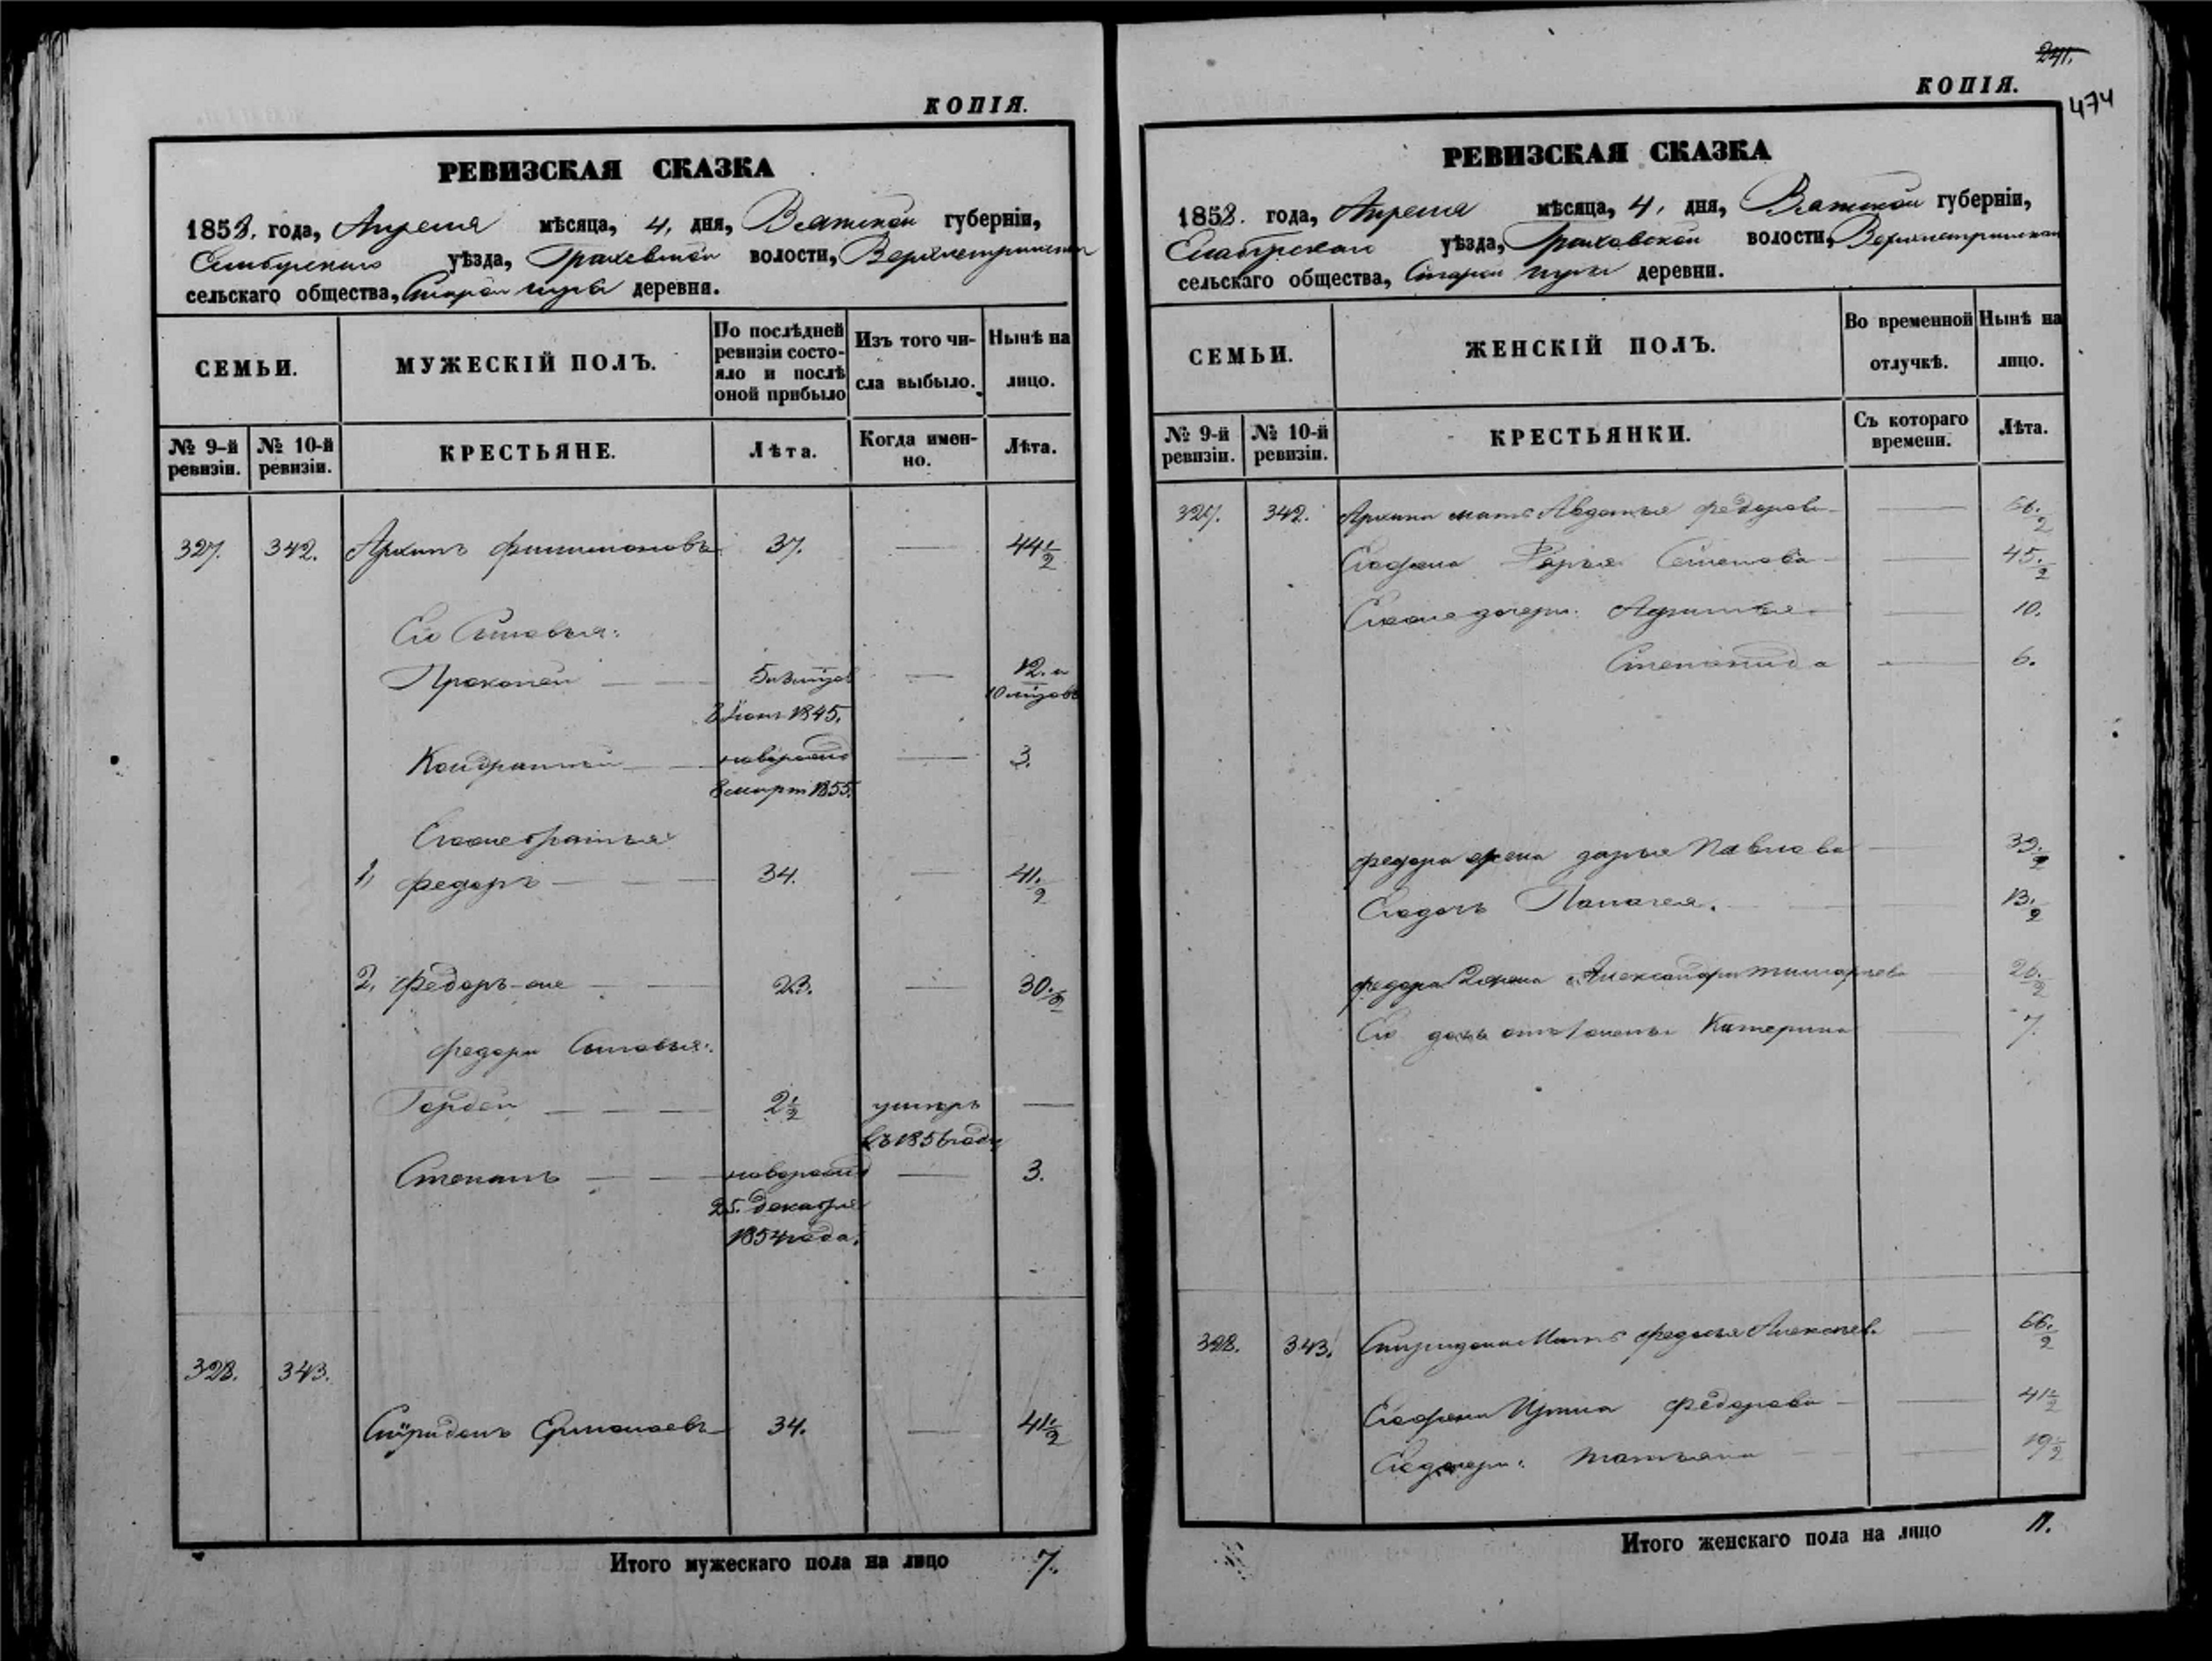 КОПІЯ.
РЕВИЗСКАЯ СКАЗКА
1858. года, Апреля мѣсяца, 4. дня, Вятской губерніи,
Елабужскаго уѣзда, Граховской волости,
сельскаго общества, Старой деревни.
СЕМЬИ.
МУЖЕСКІЙ ПОЛЪ.
По послѣдней ревизіи состо-
яло и послѣ оной прибыло
Изъ того чи-
сла выбыло.
Нынѣ на
лицо.
№ 9-й ревизіи.
№ 10-й ревизіи.
КРЕСТЬЯНЕ.
Лѣта.
Когда имен-
но.
Лѣта.
327. 342. Архипъ Филимоновъ 37. — 44 1/2
Его Сыновья:
Прокопей — — 5 — 12. и
10 мѣсяцов
1845.
Кондратей — — новорожд — 3.
8 март 1855.
Егоже братья
1, Федоръ — — 34. — 41. 1/2
2, Федоръ-же — — 23. — 30. 1/2
Федора Сыновья:
Гордей — — 2 1/2 умеръ —
въ 1856 году
Степанъ — — новорожд — 3.
25. декабря
1854 года.
328. 343.
Спиридонъ Ермолаевъ 34. — 41 1/2
Итого мужескаго пола на лицо 7.
241.
КОПІЯ.
474
РЕВИЗСКАЯ СКАЗКА
1858. года, Апреля мѣсяца, 4. дня, Вятской губерніи,
Елабужскаго уѣзда, Граховской волости,
сельскаго общества, Старой деревни.
СЕМЬИ.
ЖЕНСКІЙ ПОЛЪ.
Во временной
отлучкѣ.
Нынѣ на
лицо.
№ 9-й ревизіи.
№ 10-й ревизіи.
КРЕСТЬЯНКИ.
Съ котораго
времени.
Лѣта.
327. 342. Архипа мать Авдотья Федорова — 66. 1/2
Его жена Дарья Семенова — 45. 1/2
Егоже дочери: — 10.
Степанида — 6.
Федора жена Дарья Павлова — 39. 1/2
Его дочь Палагея. — 13. 1/2
Федора 2 жена Александра 26. 1/2
Его дочь от 1 жены Катерина 7.
328. 343. Спиридона Мать Федосья Алексѣев. — 66. 1/2
Его жена Ирина Федорова — 41 1/2
Его дочери: Татьяна — 19 1/2
Итого женскаго пола на лицо 11.